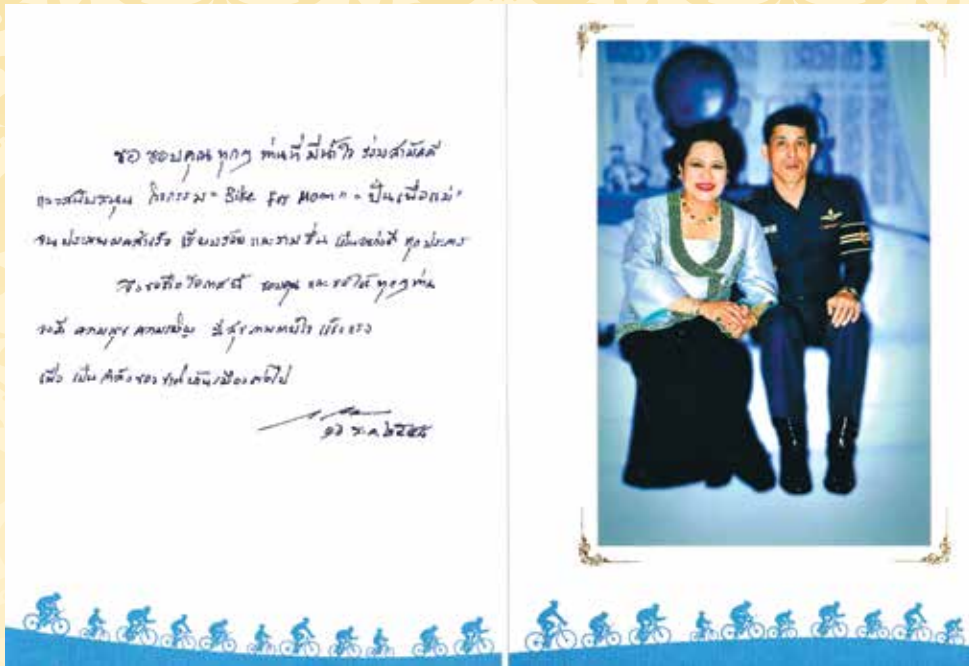 ขอ ขอบคุณ ทุกๆ ท่านที่ มีน้ำใจ ร่วมสามัคคี
และสนับสนุน กิจกรรม " Bike For Mom " " ปั่นเพื่อแม่ "
จน ประสบผลสำเร็จ เรียบร้อย และราบรื่น เป็นอย่างดี ทุก ประการ
จึงขอถือโอกาสนี้ ขอบคุณ และ ขอให้ ทุกๆ ท่าน
จงมี ความสุข ความเจริญ มีสุขภาพกายใจ แข็งแรง
เพื่อ เป็น กำลังของ ชาติบ้านเมืองต่อไป
๒๕๕๘